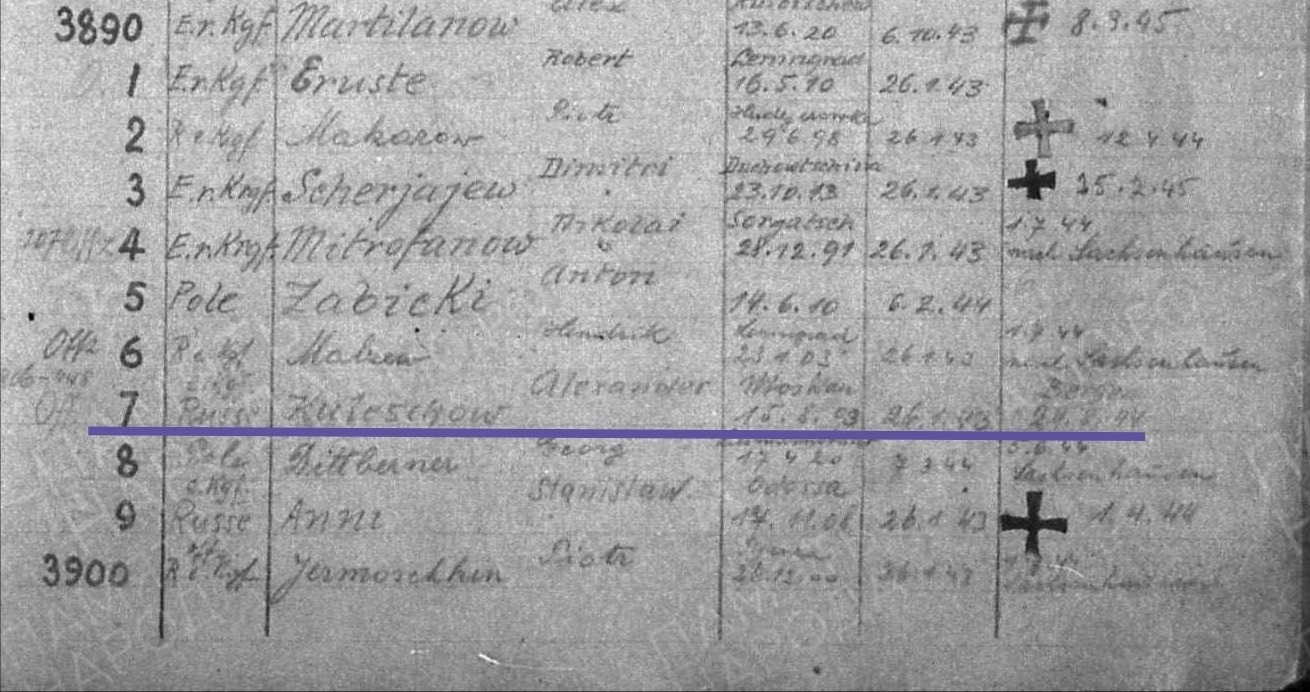 3890 E.r.Kgf Martilanow Alex 13.6.20 6.10.43 8.3.45
1 E.r.Kgf Eruste Robert Leningrad 16.5.10 26.1.43
2 R.e.Kgf Makarow Piotr 29.6.98 26.1.43 12.4.44
3 E.r.Krgf. Scherjajew Dimitri Duchowtschina 23.10.13 26.1.43 25.2.45
4 E.r.Krgf. Mitrofanow Nikolai Sergatsch 28.12.91 26.1.43 1.7.44
nach Sachsenhausen
5 Pole Zabicki Anton 14.6.10 6.2.44
Off. 6 R.e.Kgf Hendrik Leningrad 23.1.03 26.1.43 1.7.44
nach Sachsenhausen
Off 7 e.Kgf. Russe Alexander Moskau 15.8.93 26.1.43 Bergen
8 Pole Dittberner Georg 17.4.20 7.3.44
Sachsenhausen
9 e.Kgf. Russe Anni Stanislaw Odessa 17.11.08 26.1.43 1.4.44
3900 Jermoschkin Piotr 26.12.00 26.1.43